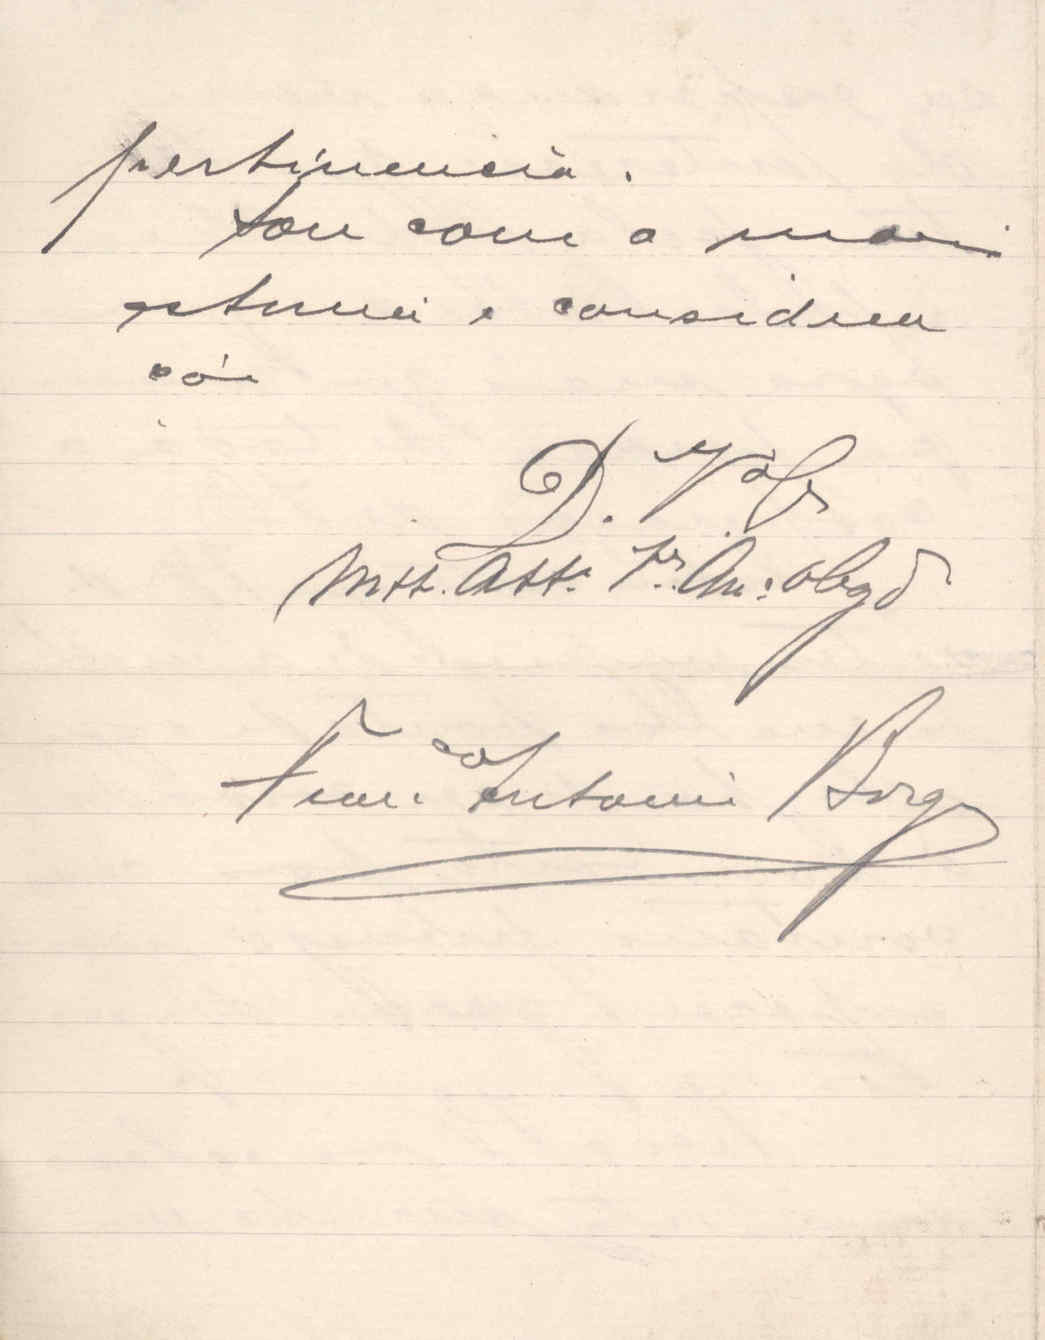 pertinencia.
Sou com a maior
estima e considera
ção
D. V. Sª
Mtt. Attº Vr. Am.º obgdº
Franco Antonio Borges